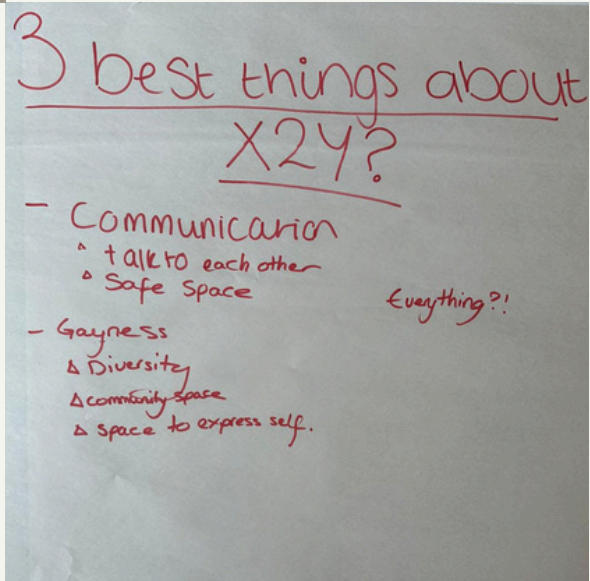 3 best things about
X2Y?
- Communication
△ talk to each other
△ Safe Space
Everything?!
- Gayness
△ Diversity
△ community space
△ space to express self.